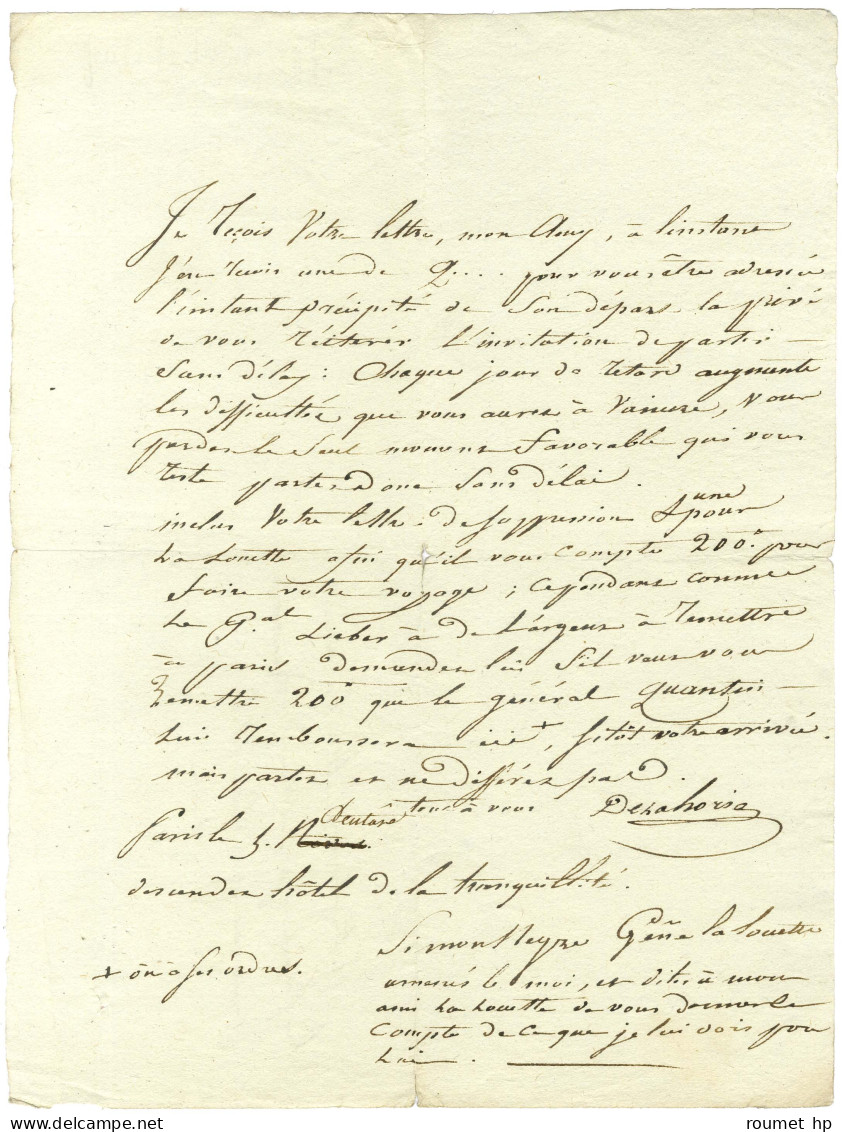 Je reçois votre lettre, mon amy, à l'instant
j'en reçois une de Q.... pour vous être adressée
l'instant précipité de son départ la privé
de vous réiterer l'invitation de partir
sans délay: chaque jour de retard augmente
les difficultés que vous aures à vaincre, vous
perdes le seul moment favorable qui vous
reste partes donc sans délai.
inclus votre lettre de suppression & une pour
La Louette afin qu'il vous compte 200# pour
faire votre voyage; cependant comme
Le G.al Lieber à de l'argent à remettre
à paris demandes lui s'il veut vous
remettre 200# que le général Quantin
lui remboursera ici +, sitôt votre arrivée.
mais partes et ne différes pas.
tout à vous
Paris le 5. Ventôse
descendes hôtel de la tranquillité.
+ ou à ses ordres.
Si mon gêne la Louette
amenés le moi, et dites à mon
ami La Louette de vous donner le
compte de ce que je lui dois pour
lui.
roumet hp
WWW.DELCAMPE.NET